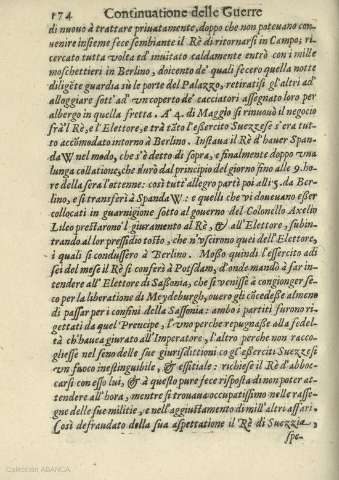 174 Continuatione delle Guerre
di nuovo à trattare privatamente, doppo che non poteuano con-
uenire insieme fece sembiante il Rè di ritornarsi in Campo; ri-
cercato tutta volta ed inuitato caldamente entrò con i mille
moschettieri in Berlino, doicento de' quali fecero quella notte
diligẽte guardia sù le porte del Palazzo, retiratisi gl'altri ad
alloggiare sott'ad vn coperto de' cacciatori assegnato loro per
albergo in quella fretta. A' 4. di Maggio si rinuouò il negocio
frà'l Rè, e l'Elettore, e trà tãto l'essercito Suezzese s'era tut-
to accõmodato intorno à Berlino. Instaua il Rè d'hauer Span-
daW nel modo, che s'è detto di sopra, e finalmente doppo vna
lunga collatione, che durò dal principio del giorno fino alle 9. ho-
re della sera l'ottenne: così tutt'allegro partì poi alli 5. da Ber-
lino, e si transferì à SpandaW: e quelli che vi doueuano esser
collocati in guarnigione sotto al gouerno del Colonello Axelin
Lileo prestarono'l giuramento al Rè, & all'Elettore, subin-
trando al lor pressidio tosto, che n'uscirno quei dell'Elettore,
i quali si condussero à Berlino. Mosso quindi l'essercito adi
sei del mese il Rè si conferì à Potsdam, d'onde mandò à far in-
tendere all'Elettore di Saßonia, che si venisse à congionger se-
co per la liberatione di Meydeburgh, ouero gli cõcedesse almeno
di passar per i confini della Sassonia: ambo i partiti furono ri-
gettati da quel Prencipe, l'uno perche repugnaße alla fedel-
tà ch'haueа giurato all'Imperatore, l'altro perche non racco-
gliesse nel seno delle sue giurisdittioni co gl'eßerciti Suezzesi
vn fuoco inestinguibile, & essitiale: richiese il Rè d'abboc-
carsi con esso lui, & à questo pure fece risposta di non poter at-
tendere all'hora, mentre si trouaua occupatissimo nelle rasse-
gne delle sue militie, e nell'aggiustamento di mill'altri affari.
Così defraudato della sua aspettatione il Rè di Suezzia
spe-
Colección ABANCA